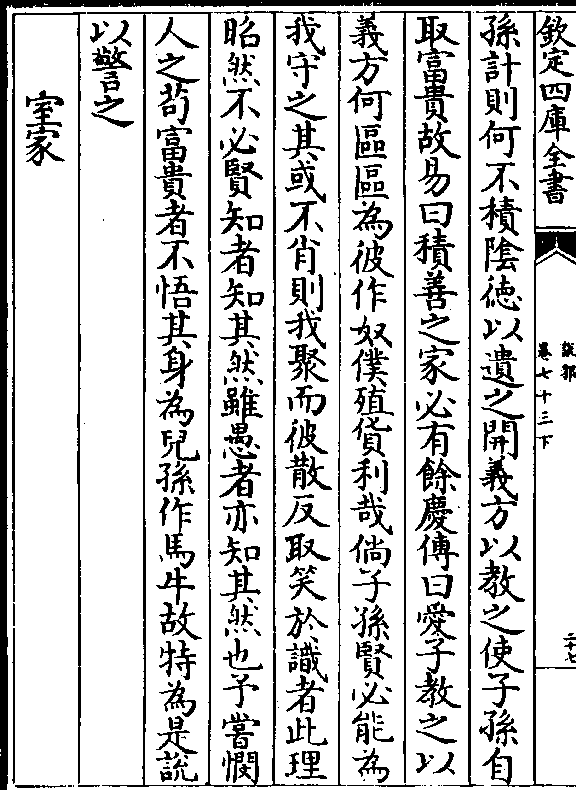 欽定四庫全書
說郛
卷七十三下
二十七
孫計則何不積陰徳以遺之開義方以教之使子孫自
取富貴故易曰積善之家必有餘慶傳曰愛子教之以
義方何區區為彼作奴僕殖貨利哉倘子孫賢必能為
我守之其或不肖則我聚而彼散反取笑於識者此理
昭然不必賢知者知其然雖愚者亦知其然也予嘗憫
人之苟富貴者不悟其身為兒孫作馬牛故特為是說
以警之
室家